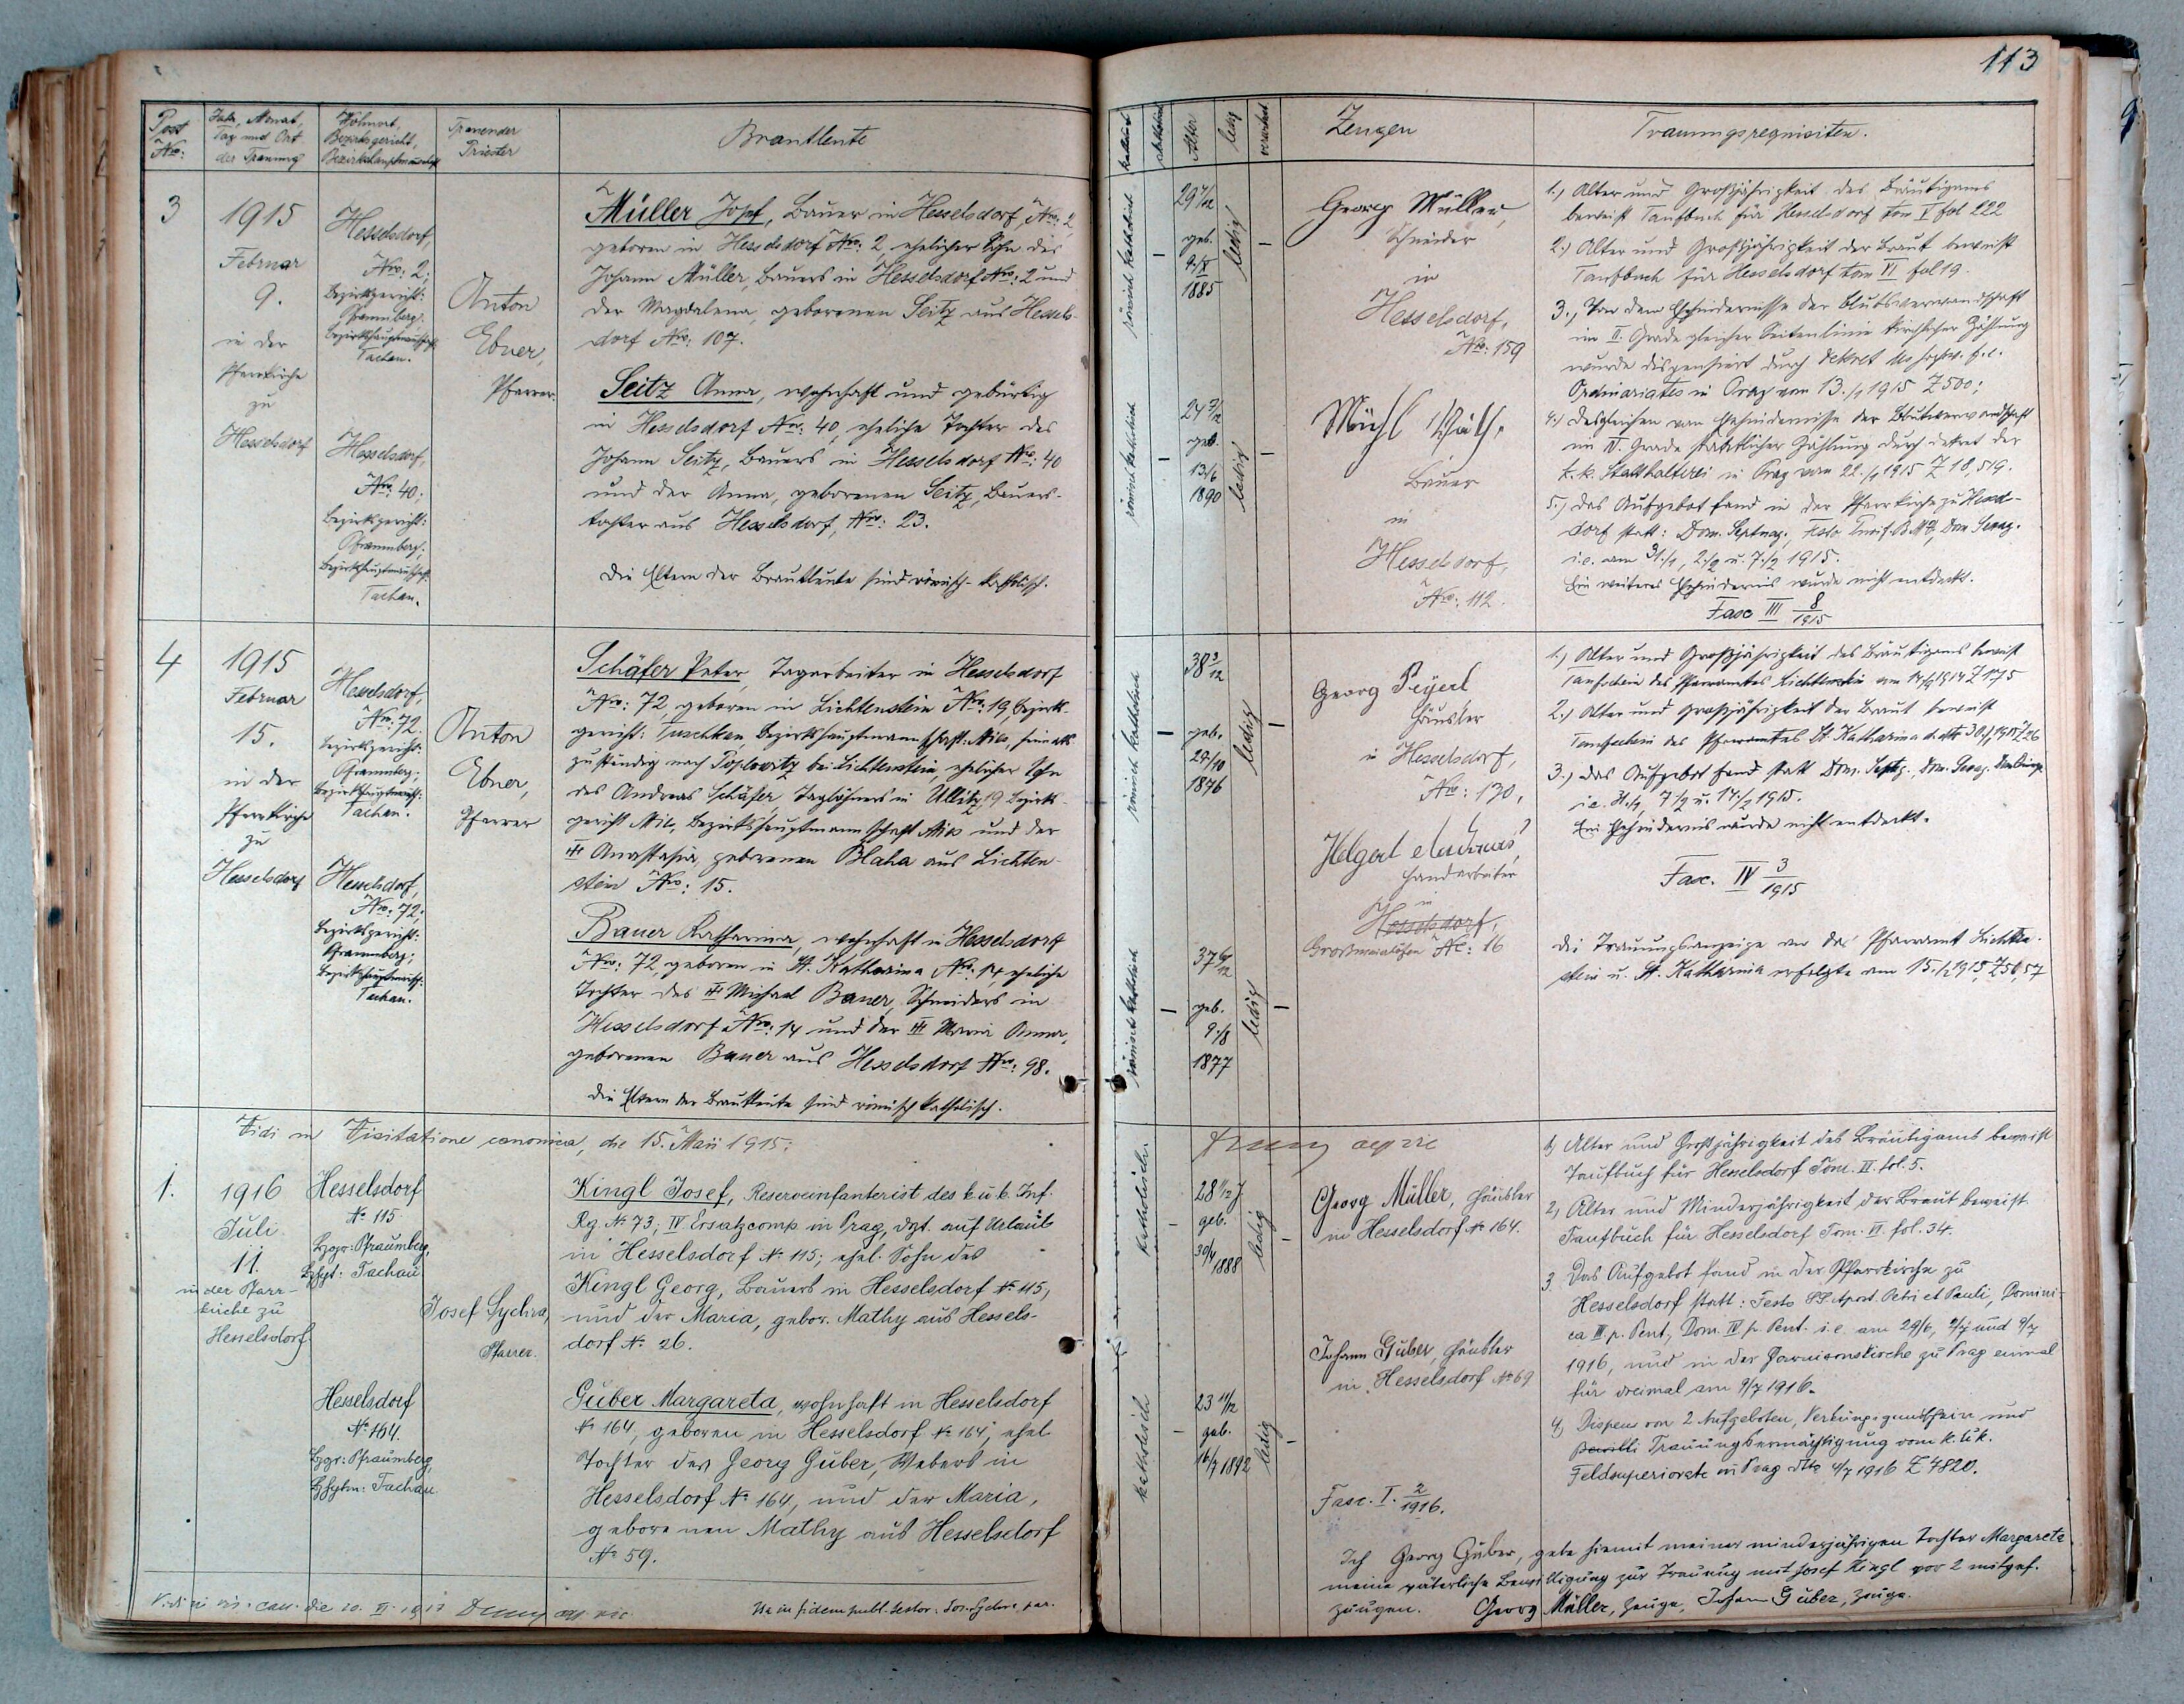 113
Post Nro:
Jahr, Monat, Tag und Ort der Trauung
Wohnort, Bezirksgericht, Bezirkshauptmannschaft
Trauender Priester
Brautleute
katholisch
Alter
ledig
verwitwet
Zeugen
Trauungsrequisiten.
3
1915
Februar
9.
in der
Pfarrkirche
zu
Hesselsdorf
Hesselsdorf,
Nro: 2;
Bezirksgericht:
Pfraumberg;
Bezirkshauptmannschaft:
Tachau.
Hesselsdorf,
Nro: 40;
Bezirksgericht:
Pfraumberg;
Bezirkshauptmannschaft:
Tachau.
Anton
Ebner,
Pfarrer.
Müller Josef, Bauer in Hesselsdorf, Nro: 2,
geboren in Hesselsdorf Nro: 2, ehelicher Sohn des
Johann Müller, Bauers in Hesselsdorf Nro: 2 und
der Magdalena, geborenen Seitz aus Hessels-
dorf Nro: 107.
Seitz Anna, wohnhaft und gebürtig
in Hesselsdorf Nro: 40, eheliche Tochter des
Johann Seitz, Bauers in Hesselsdorf Nro: 40
und der Anna, geborenen Seitz, Bauers-
tochter aus Hesselsdorf, Nro: 23.
Die Eltern der Brautleute sind römisch-katholisch.
römisch katholisch
–
29
geb.
1885
ledig
–
römisch katholisch
–
24 7/12
geb.
13/6
1890
ledig
–
Georg Müller,
Schneider
in
Hesselsdorf,
Nro: 159
Bauer
in
Hesselsdorf,
Nro: 112.
1.) Alter und Großjährigkeit des Bräutigams
beweist Taufbuch für Hesselsdorf tom V fol 222
2.) Alter und Großjährigkeit der Braut beweist
Taufbuch für Hesselsdorf tom VI fol 19.
3.) Von dem Ehehindernisse der Blutsverwandschaft
im II. Grade gleicher Seitenlinie kirchlicher Zählung
wurde dispensiert durch Dekret des hochw. f. e.
Ordinariates in Prag vom 13./1 1915 Z 500;
4.) desgleichen vom Ehehindernisse der Blutsverwandschaft
im IV. Grade staatlicher Zählung durch Dekret der
k. k. Statthalterei in Prag vom 22./1 1915 Z 18,519.
5.) Das Aufgebot fand in der Pfarrkirche zu Hessels-
dorf statt: Dom. Septuag., Festo Purif. B.M.V., Dom. Sexag.
i. e. am 31./1, 2./2 u. 7./2 1915.
Ein weiteres Ehehindernis wurde nicht entdeckt.
Fasc III 8/1915
4
1915
Februar
15.
in der
Pfarrkirche
zu
Hesselsdorf
Hesselsdorf,
Nro: 72.
Bezirksgericht:
Pfraumberg;
Bezirkshauptmannsch:
Tachau.
Hesselsdorf,
Nro: 72;
Bezirksgericht:
Pfraumberg;
Bezirkshauptmannsch:
Tachau.
Anton
Ebner,
Pfarrer
Schäfer Peter, Tagarbeiter in Hesselsdorf
Nro: 72, geboren in Lichtenstein Nro: 19, Bezirks-
gericht: Tuschkau, Bezirkshauptmannschaft: Mies, heimats
zuständig nach Töplowitz bei Lichtenstein, ehelicher Sohn
des Andreas Schäfer, Taglöhners in Ullitz 19 Bezirks-
gericht Mies, Bezirkshauptmannschaft Mies und der
Anastasia, geborenen Blaha aus Lichten-
stein Nro: 15.
Bauer Katharina, wohnhaft in Hesselsdorf
Nro: 72, geboren in St. Katharina Nro: 14, eheliche
Tochter des Michael Bauer, Schneiders in
Hesselsdorf Nro: 14 und der Maria Anna,
geborenen Bauer aus Hesselsdorf Nro: 98.
Die Eltern der Brautleute sind römisch katholisch.
römisch katholisch
–
38 3/12
geb.
29/10
1876
ledig
–
römisch katholisch
–
37 6/12
geb.
9./8
1877
ledig
–
Georg Peyerl
Häusler
in Hesselsdorf,
Nro: 130,
Helgert Andreas,
Handarbeiter
in
Hesselsdorf,
Nc: 16
1.) Alter und Großjährigkeit des Bräutigams beweist
Taufschein des Pfarramtes Lichtenstein
2.) Alter und Großjährigkeit der Braut beweist
Taufschein des Pfarramtes St. Katharina
3.) Das Aufgebot fand statt Dom. Septg., Dom. Sexag.
i.e. 31./1, 7./2 u. 14./2 1915.
Ein Ehehindernis wurde nicht entdeckt.
Fasc. IV 3/1915
Die Trauungsanzeige an das Pfarramt Lichten-
stein u. St. Katharina erfolgte am 15./2 1915, Z 56, 57
Vidi in Visitatione canonica, die 15. Maii 1915:
1.
1916
Juli
11.
in der Pfarr-
kirche zu
Hesselsdorf.
Hesselsdorf
No 115
Bzgr: Pfraumberg
Tachau
Hesselsdorf
No 164.
Bzgr: Pfraumberg,
Tachau
Josef Sychra,
Pfarrer.
Kingl Josef, Reserveinfanterist des k. u. k. Inf.
Rg. No 73, IV. Ersatzcomp in Prag, dzt. auf Urlaub
in Hesselsdorf No 115; ehel. Sohn des
Kingl Georg, Bauers in Hesselsdorf No 115,
und der Maria, gebor. Mathy aus Hessels-
dorf No 26.
Guber Margareta, wohnhaft in Hesselsdorf
No 164, geboren in Hesselsdorf No 164, ehel.
Tochter des Georg Guber, Webers in
Hesselsdorf No 164, und der Maria,
geborenen Mathy aus Hesselsdorf
No 59.
katholisch.
–
geb.
1888
ledig
–
katholisch
–
23 11/12
geb.
1892
ledig
–
Georg Müller, Häusler
in Hesselsdorf No 164.
Johann Guber, Häusler
in Hesselsdorf No 69
Fasc. I. 2/1916.
1, Alter und Großjährigkeit des Bräutigams beweist
Taufbuch für Hesselsdorf Tom. VI. fol. 5.
2, Alter und Minderjährigkeit der Braut beweist
Taufbuch für Hesselsdorf Tom. VI. fol. 34.
3. Das Aufgebot fand in der Pfarrkirche zu
Hesselsdorf statt: Festo SS. Apost. Petri et Pauli, Domini-
ca III. p. Pent., Dom. IV p. Pent. i.e. am 29/6, 2/7 und 9/7
1916, und in der Garnisonskirche zu Prag einmal
für dreimal am 9/7 1916.
4, Dispens von 2 Aufgeboten, Verkündigungsschein und
Trauungsermächtigung vom k. u. k.
Feldsuperiorate in Prag dto 4/7 1916 Z 4820.
Ich Georg Guber, gebe hiemit meiner minderjährigen Tochter Margareta
meine väterliche Bewilligung zur Trauung mit Josef Kingl vor 2 mitgef.
Zeugen. Georg Müller, Zeuge, Johann Guber, Zeuge.